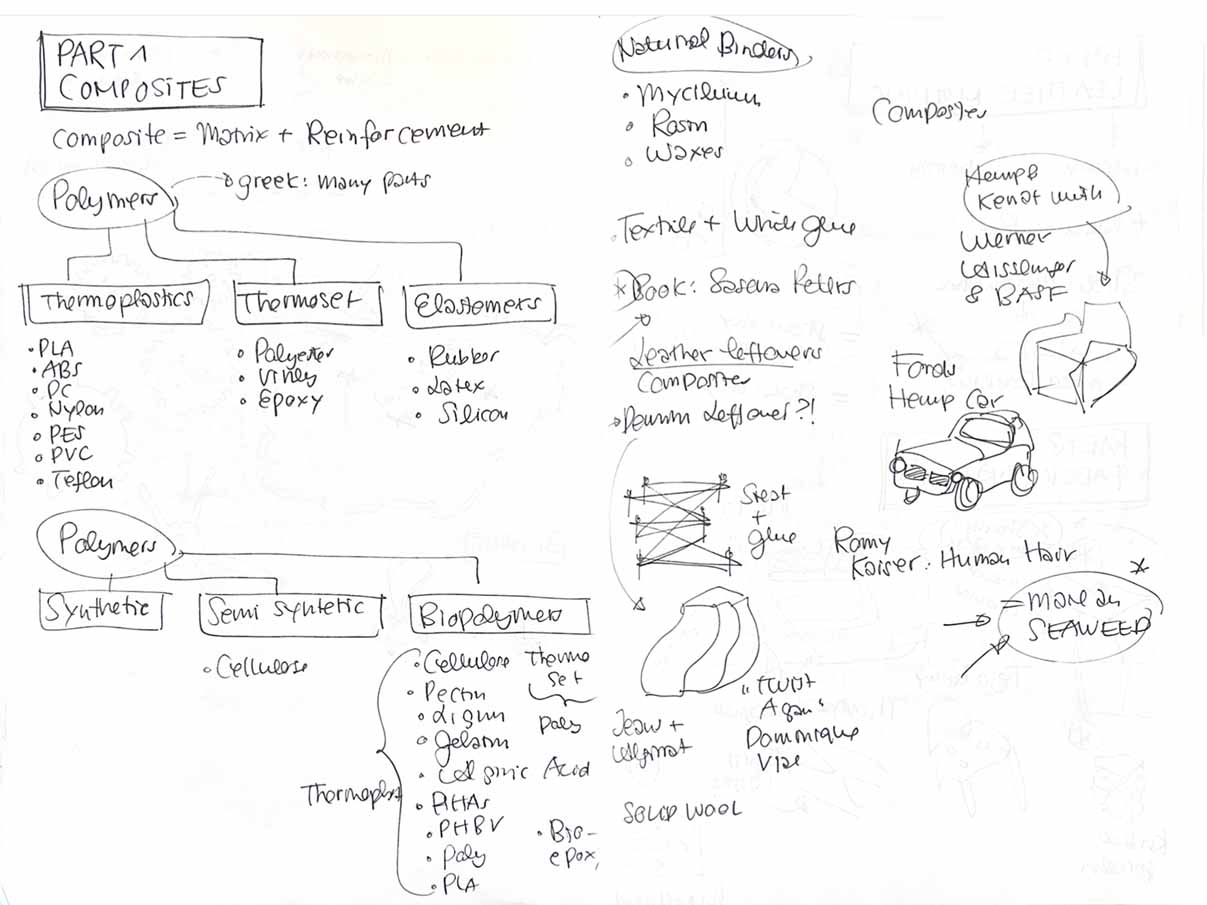 PART 1
COMPOSITES
Composite = Matrix + Reinforcement
Polymers
greek: many parts
Thermoplastics
Thermoset
Elastomers
• PLA
• ABS
• PC
• Nylon
• PES
• PVC
• Teflon
• Polyester
• Epoxy
• Rubber
• Latex
• Silicon
Polymers
Synthetic
Semi Syntetic
Biopolymers
• Cellulose
Thermoplast
• Cellulose
• Pectin
• Lignin
• Gelatin
• Acid
• PHAs
• PHBV
• Poly
• PLA
Thermo
Set
Poly
• Bio-
epoxy
Natural Binders
• Mycilium
• Rosin
• Waxes
Textile + White glue
Book: Sascha Peters
Leather leftovers
Composites
Denim Leftover?!
+
glue
Jeans +
"Twist
Again"
Dominique
SOLID WOOL
Composites
Hemp &
Kenaf with
Werner
Aissslinger
& BASF
Fords
Hemp Car
Romy
Kaiser: Human Hair
= more on
SEAWEED